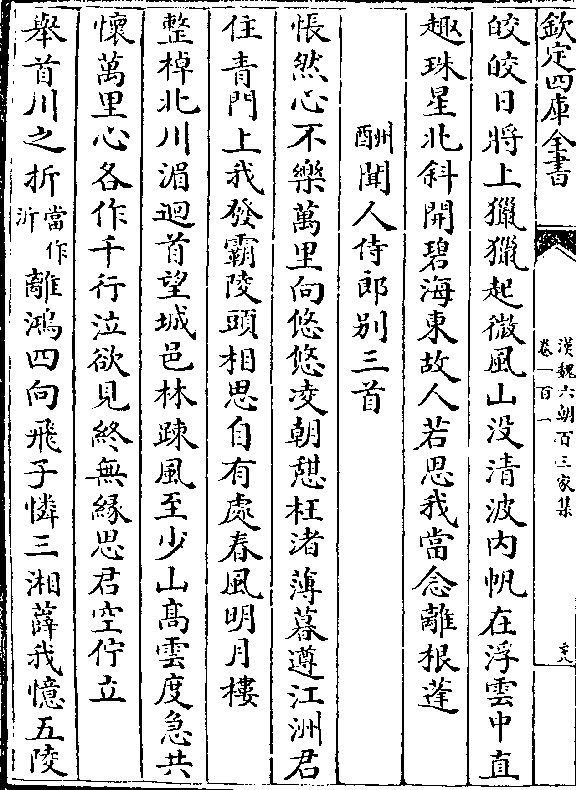 欽定四庫全書
漢魏六朝百三家集
卷一百一
皎皎日將上獵獵起微風山没清波内帆在浮雲中直
趣珠星北斜開碧海東故人若思我當念離根蓬
酬聞人侍郎别三首
悵然心不樂萬里向悠悠凌朝憇枉渚薄暮遵江洲君
住青門上我發霸陵頭相思自有處春風明月樓
整棹北川湄迴首望城邑林踈風至少山髙雲度急共
懷萬里心各作千行泣欲見終無縁思君空佇立
舉首川之折當作沂離鴻四向飛子憐三湘薜我憶五陵